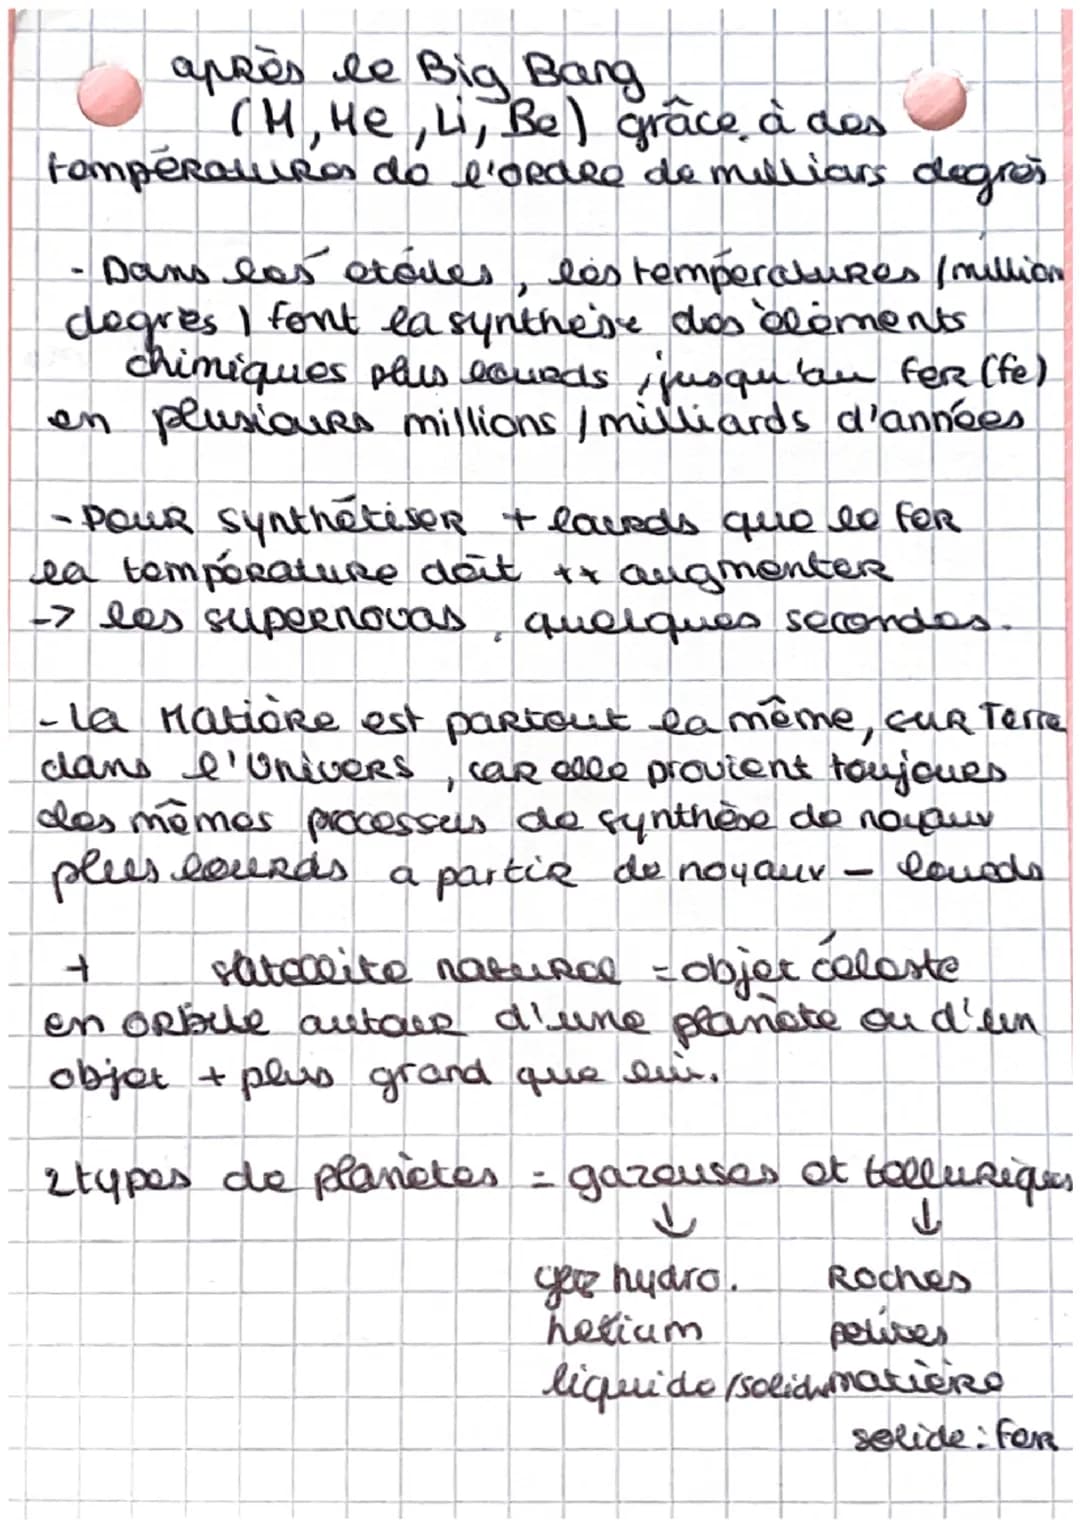 après le Big Bang
(H, He, Li, Be) grâce à des
températures de l'ordre de milliars degrés
- Dans les étoiles, les températures (million
degrès) font la synthèse des éléments
chimiques plus lourds, jusqu'au fer (fe)
en plusieurs millions / milliards d'années
- Pour synthétiser + lourds que le fer
la température doit ++ augmenter
-> les supernovas, quelques secondes.
- La Matière est partout la même, sur Terre
dans l'Univers, car elle provient toujours
des mêmes processus de synthèse de noyaux
plus lourds a partir de noyaux - lourds
+ satellite naturel = objet céleste
en orbite autour d'une planète ou d'un
objet + plus grand que lui.
2 types de planètes = gazeuses et telluriques
↓ ↓
gaz hydro. Roches
helium petites
liquide/solide matière
solide : fer